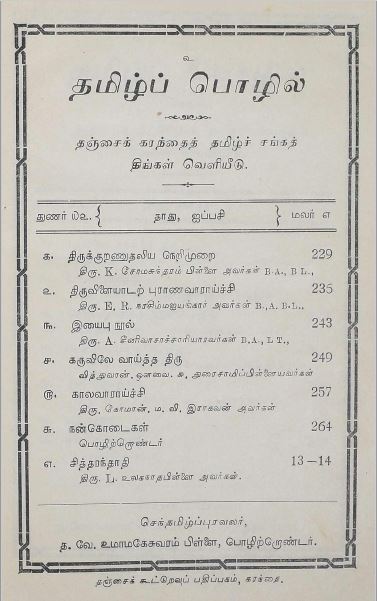 உ
தமிழ்ப் பொழில்
தஞ்சைக் கரந்தைத் தமிழ்ச் சங்கத்
திங்கள் வெளியீடு.
துணர் ௰௨. தாது, ஐப்பசி மலர் ௭
௧. திருக்குறணுதலிய நெறிமுறை 229
திரு. K. சோமசுந்தரம் பிள்ளை அவர்கள் B.A., B.L.,
௨. திருவிளையாடற் புராணவாராய்ச்சி 235
திரு. E. R. நரசிம்மஐயங்கார் அவர்கள் B.A., B.L.,
௩. இயைபு நூல் 243
திரு. A. சீனிவாசாச்சாரியாரவர்கள் B.A., L.T.,
௪. கருவிலே வாய்த்த திரு 249
வித்துவான், ஔவை. சு. துரைசாமிப்பிள்ளையவர்கள்
௫. காலவாராய்ச்சி 257
திரு. கோமான், ம. வி. இராகவன் அவர்கள்
௬. நன்கொடைகள் 264
பொழிற்றொண்டர்
௭. சித்தரந்தாதி 13–14
திரு. உலகநாதபிள்ளை அவர்கள்.
செந்தமிழ்ப்புரவலர்,
த. வே. உமாமகேசுவரம் பிள்ளை, பொழிற்றொண்டர்.
தஞ்சைக் கூட்டுறவுப் பதிப்பகம், கரந்தை.